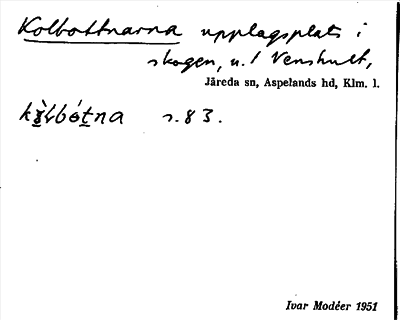 Kolbottnarna upplagsplats i
skogen, u. / Venshult,
Järeda sn, Aspelands hd, Klm. l.
s. 83.
Ivar Modéer 1951